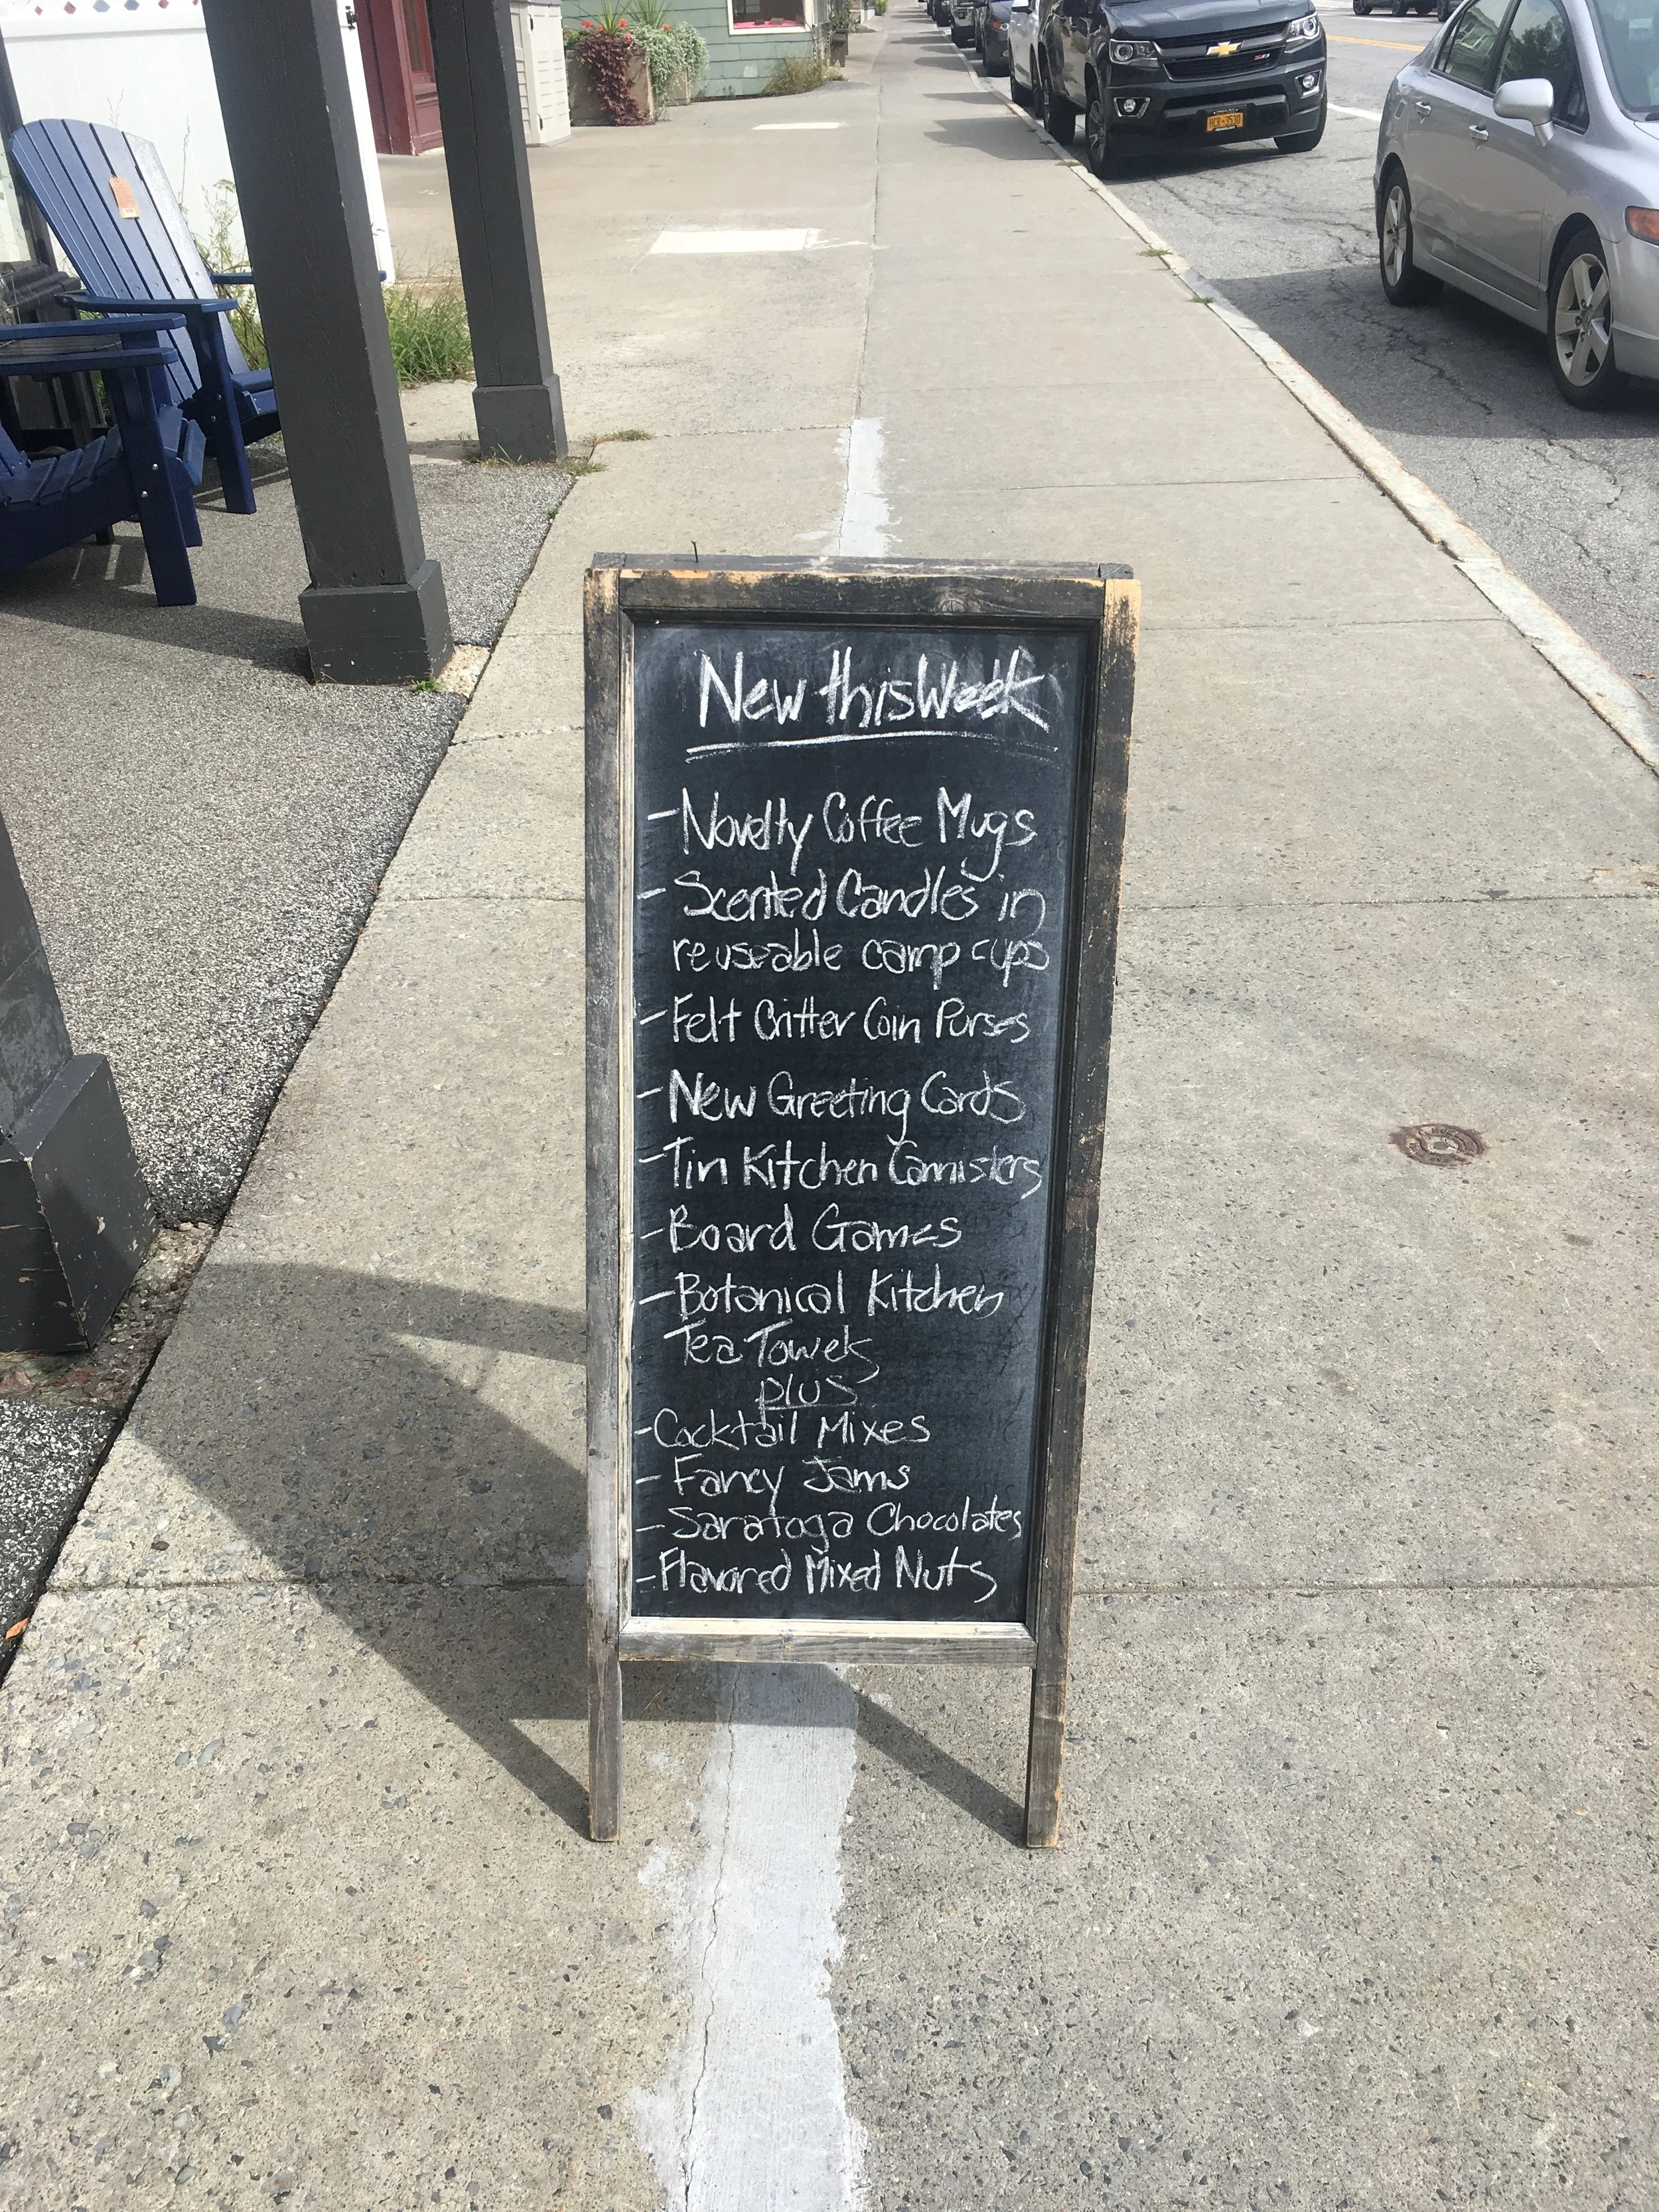 New this Week
- Novelty Coffee Mugs
- Scented Candles in
reuseable camp cups
- Felt Critter Coin Purses
- New Greeting Cards
- Tin Kitchen Cannisters
- Board Games
- Botanical Kitchen
Tea Towels
plus
- Cocktail Mixes
- Fancy Jams
- Saratoga Chocolates
- Flavored Mixed Nuts